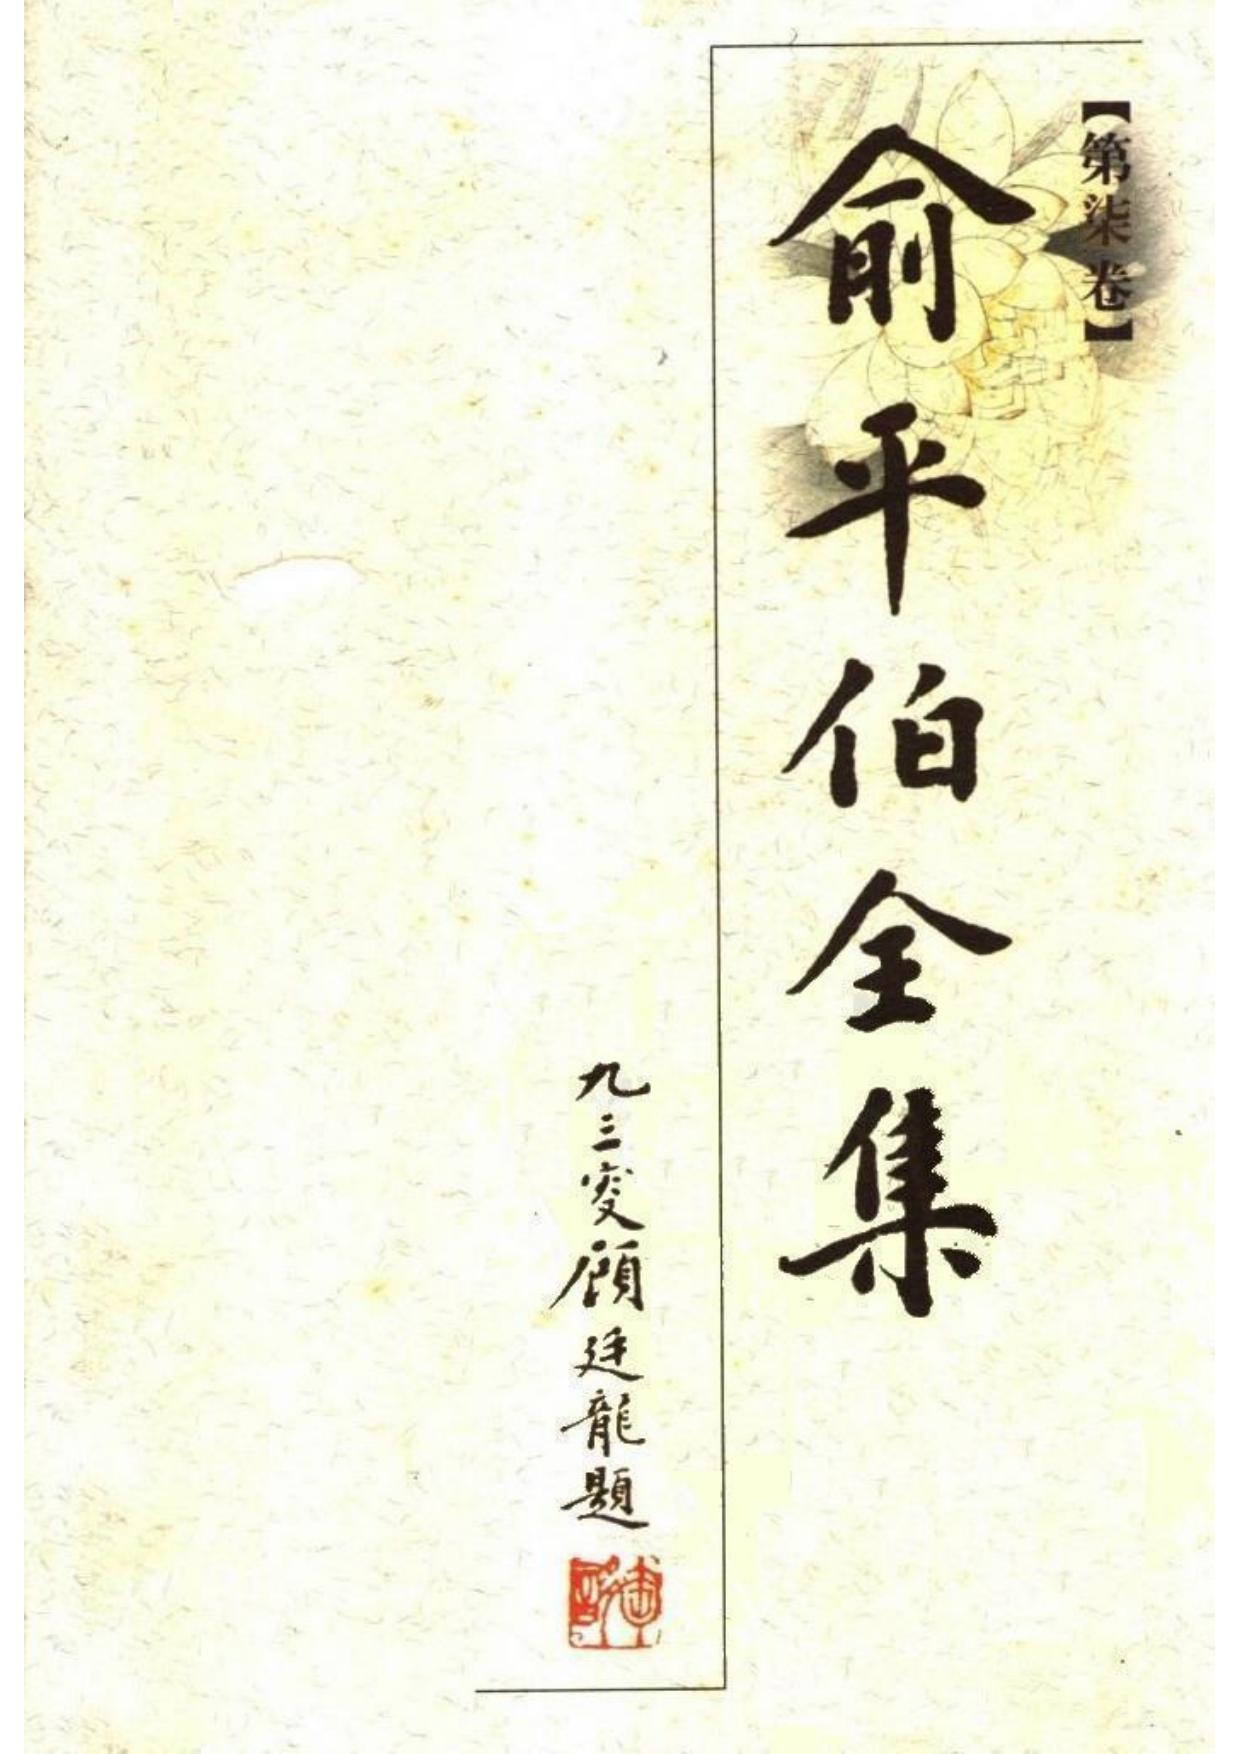 【第柒卷】
俞平伯全集
九三叟顾廷龍題